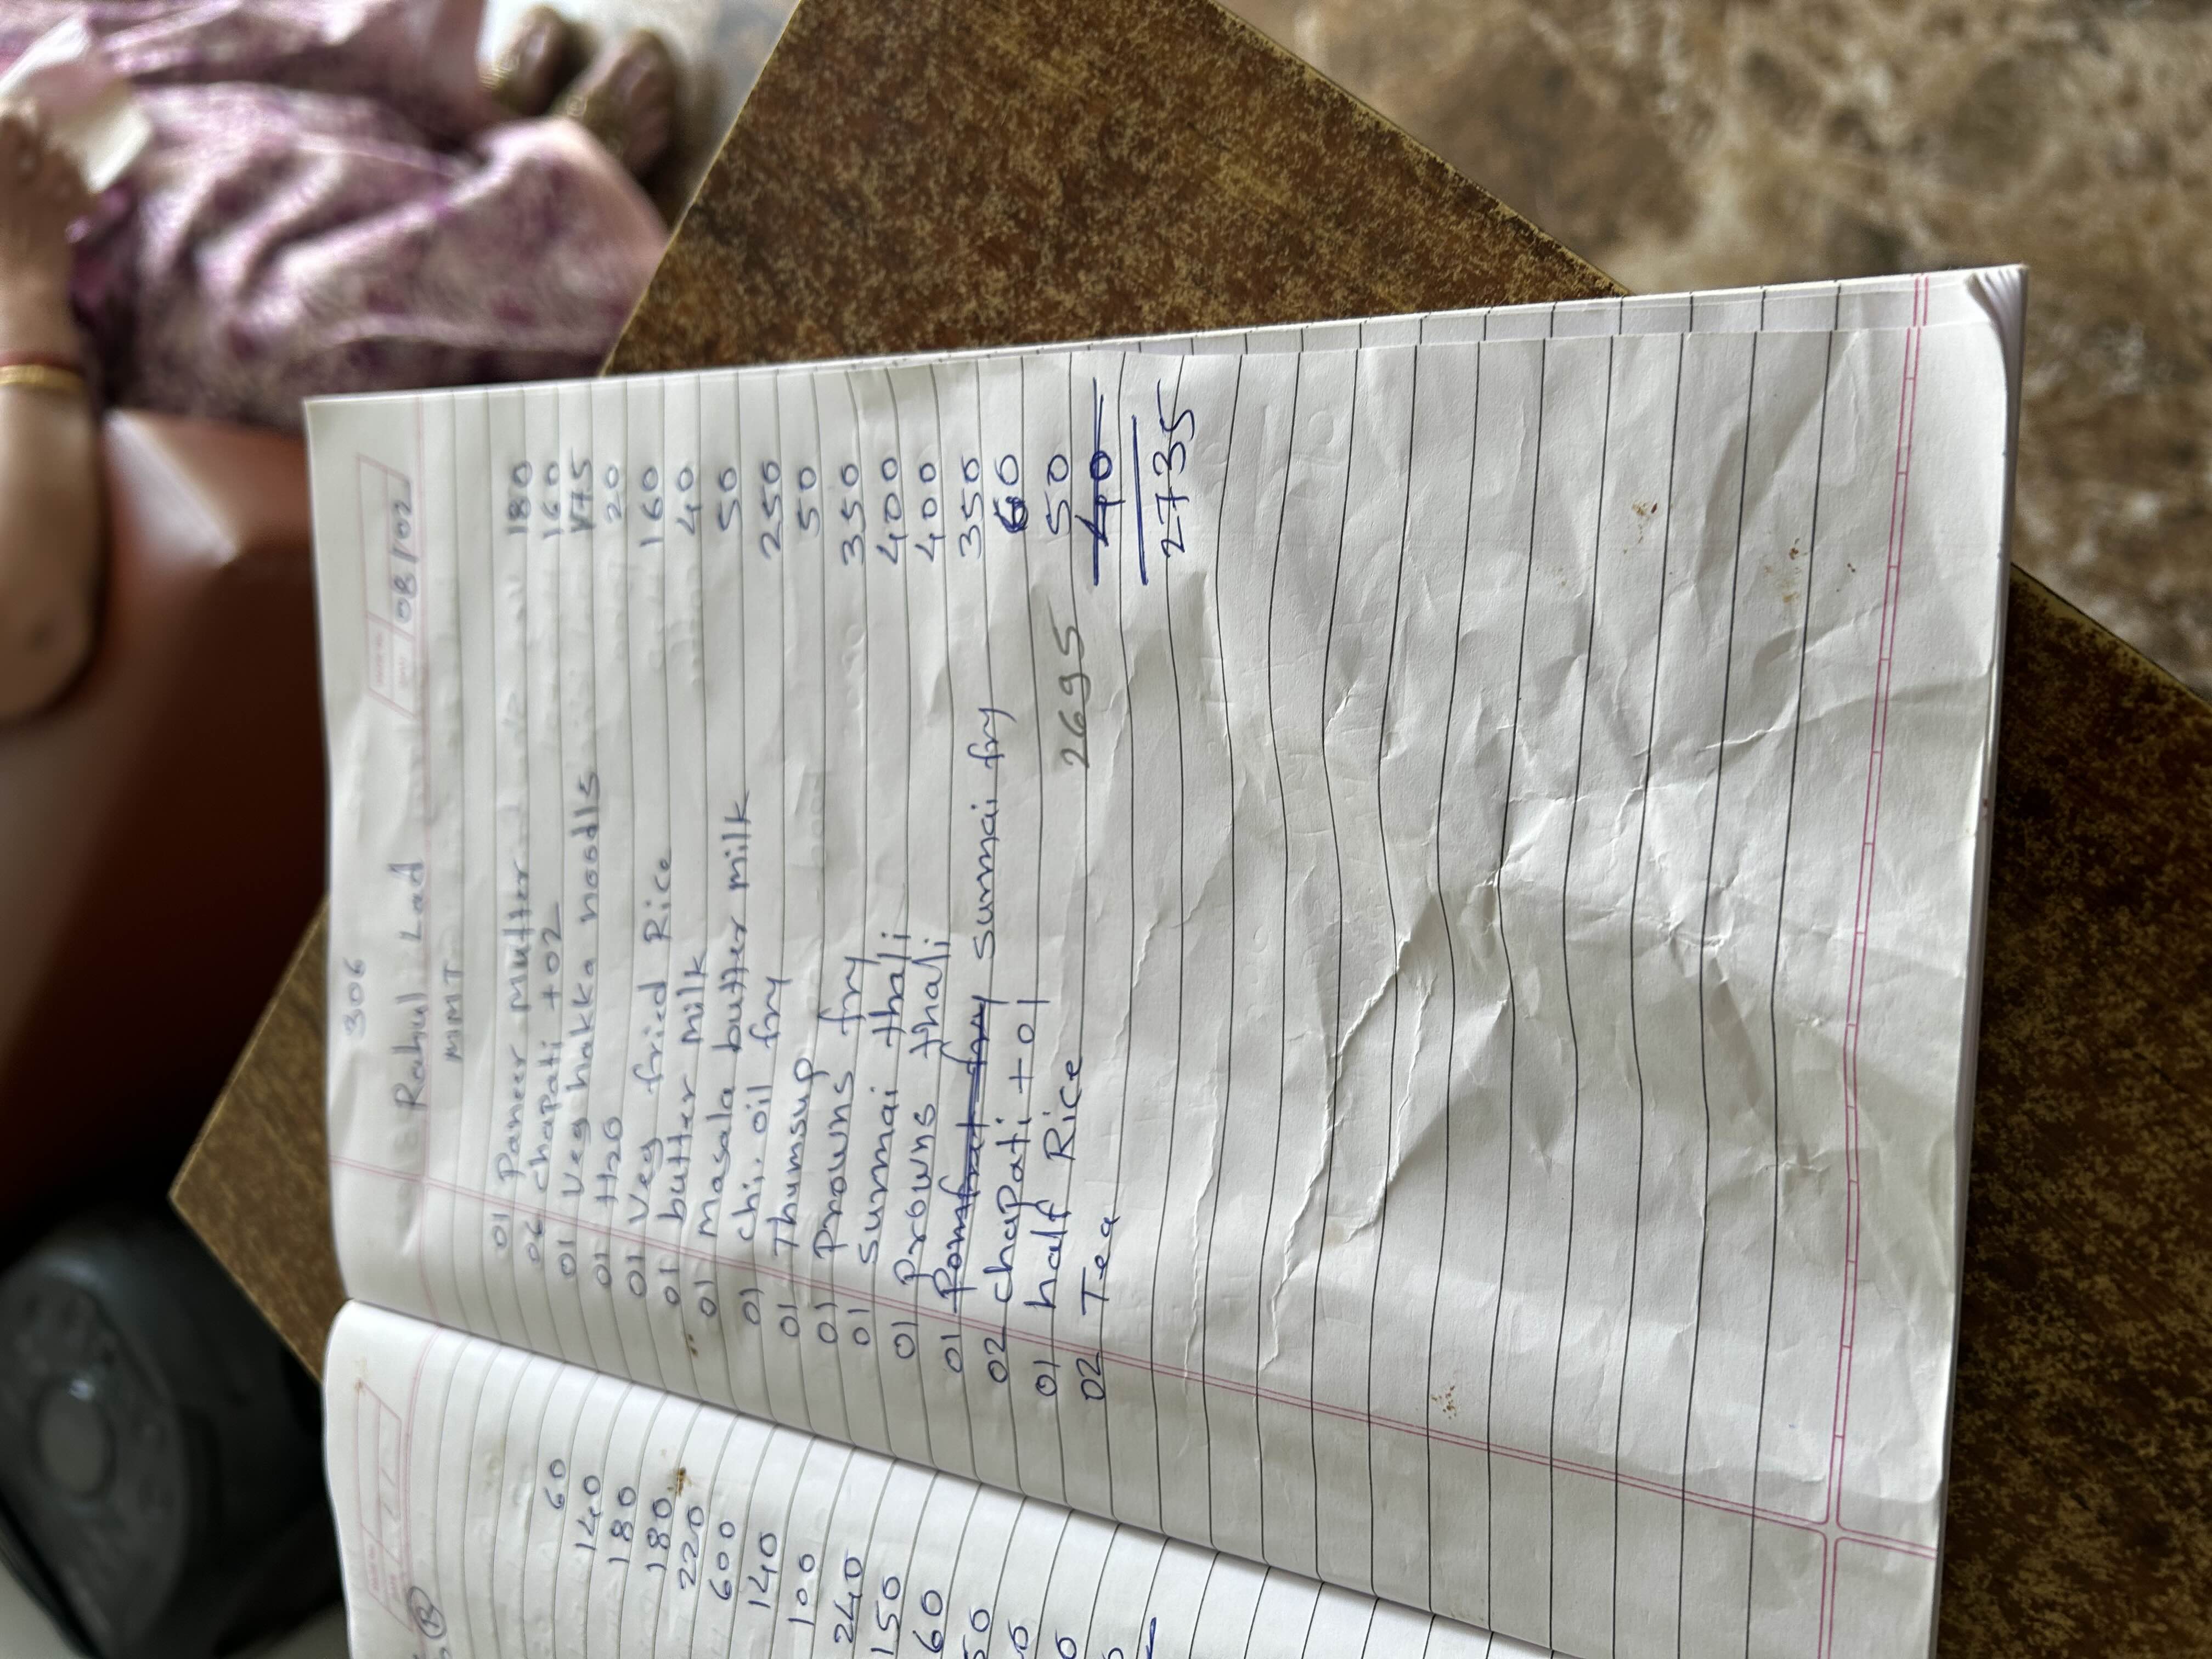 306
Rahul Lad 08/02
MMT
01 Paneer Mutter 180
06 chapati +02 160
01 Veg hakka noodls 175
01 H20 20
01 Veg fried Rice 160
01 butter milk 40
01 Masala butter milk 50
01 chi. oil fry 250
01 Thumsup 50
01 Prowns fry 350
01 surmai thali 400
01 Prowns thali 400
01 Pomfrat fry surmai fry 350
02 chapati +01 60
01 half Rice 50
02 Tea 40
2695
2735
60
140
180
180
220
600
140
100
240
150
60